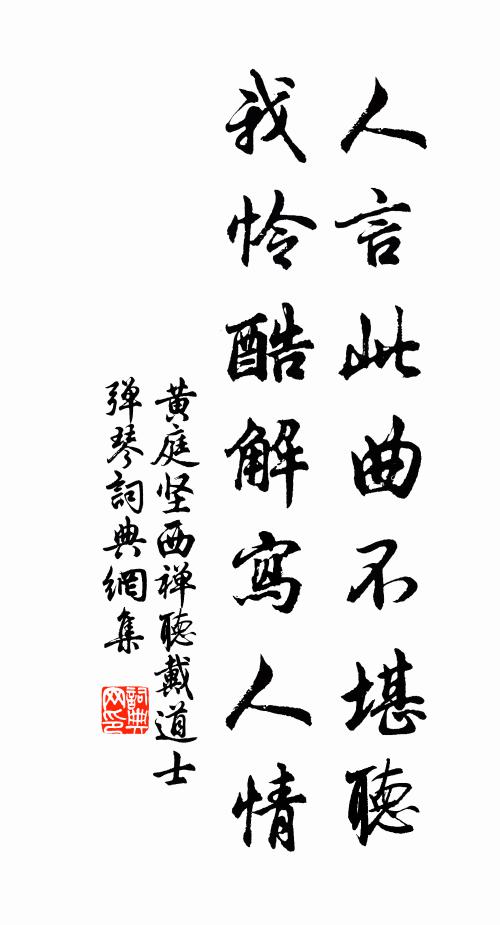 人言此曲不堪聽
我怜酷解寫人情
黄庭坚西禅聽戴道士
弹琴詞典網集
詞典网印